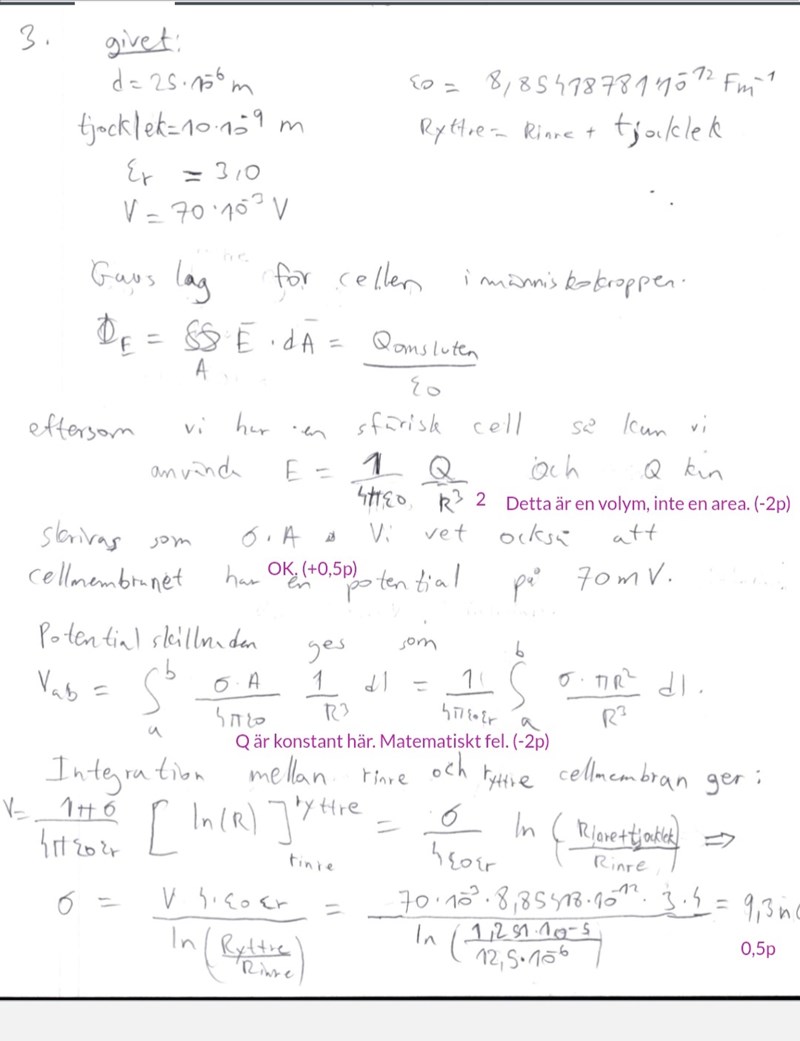 3. givet:
d = 25·10⁻⁶ m
ε0 = 8,854187871·10⁻¹² Fm⁻¹
tjocklek=10·10⁻⁹ m
Ryttre = Rinre + tjocklek
εr = 3,0
V = 70·10⁻³ V
Gaus lag för cellen i människokroppen.
Φ_E = ∯_A Ē · dĀ = Qomsluten / ε0
eftersom vi har en sfärisk cell så kan vi
använda E = 1/(4πε0) Q/R³ och Q kan
2 Detta är en volym, inte en area. (-2p)
skrivas som σ·A. Vi vet också att
OK. (+0,5p)
cellmembranet har en potential på 70mV.
Potentialskillnaden ges som
Vab = ∫_a^b (σ·A)/(4πε0) 1/R³ dl = 1/(4πε0εr) ∫_a^b (σ·πR²)/R³ dl.
Q är konstant här. Matematiskt fel. (-2p)
Integration mellan rinre och ryttre cellmembran ger:
V= (1πσ)/(4πε0εr) [ln(R)]_rinre^ryttre = σ/(4ε0εr) ln (Rinre+tjocklek / Rinre) ⇒
σ = (V 4·ε0εr)/(ln(Ryttre/Rinre)) = (70·10⁻³·8,85418·10⁻¹²·3·4)/(ln(1,251·10⁻⁵/12,5·10⁻⁶)) = 9,3n
0,5p